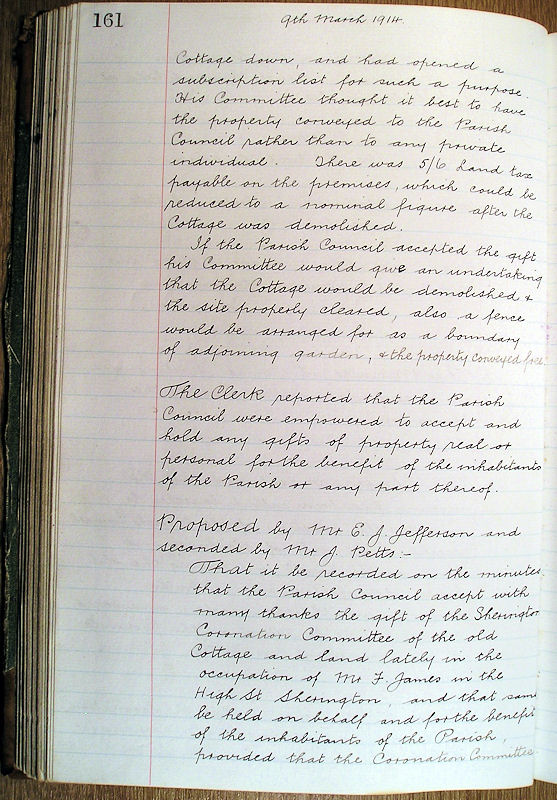 161
9th March 1914.
Cottage down, and had opened a
subscription list for such a purpose.
His Committee thought it best to have
the property conveyed to the Parish
Council rather than to any private
individual. There was 5/6 Land tax
payable on the premises, which could be
reduced to a nominal figure after the
Cottage was demolished.
If the Parish Council accepted the gift
his Committee would give an undertaking
that the Cottage would be demolished &
the site properly cleared, also a fence
would be arranged for as a boundary
of adjoining garden, & the property conveyed free.
The Clerk reported that the Parish
Council were empowered to accept and
hold any gifts of property real or
personal for the benefit of the inhabitants
of the Parish or any part thereof.
Proposed by Mr E. J. Jefferson and
seconded by Mr J. Petts:-
That it be recorded on the minutes
that the Parish Council accept with
many thanks the gift of the Sherington
Coronation Committee of the old
Cottage and land lately in the
occupation of Mr F. James in the
High St Sherington, and that same
be held on behalf and for the benefit
of the inhabitants of the Parish
provided that the Coronation Committee